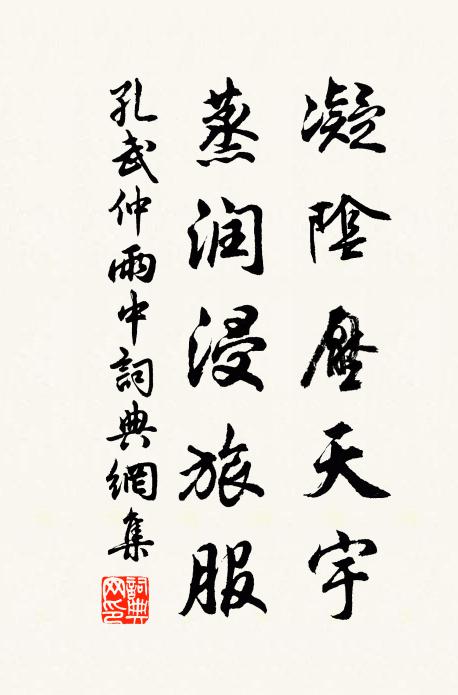 凝陰壓天宇
蒸润浸旅服
孔武仲雨中詞典網集
詞典网印